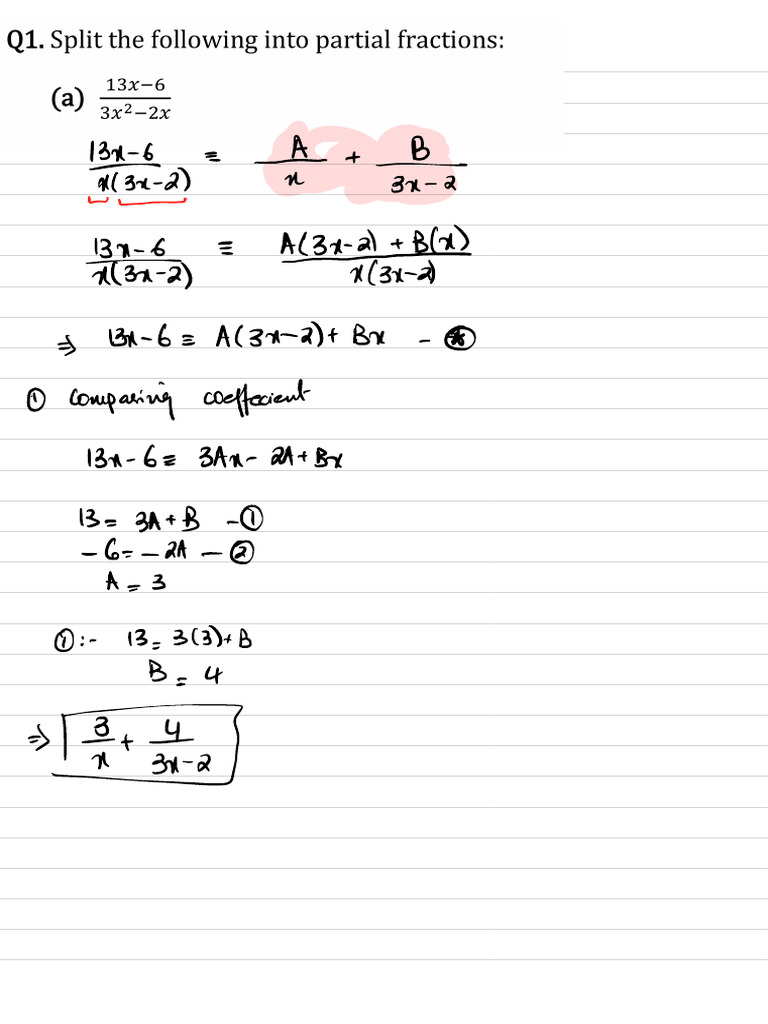 Q1. Split the following into partial fractions:
(a) (13x−6)/(3x²−2x)
(13x−6)/(x(3x−2)) ≡ A/x + B/(3x−2)
(13x−6)/(x(3x−2)) ≡ (A(3x−2) + B(x))/(x(3x−2))
⇒ 13x−6 ≡ A(3x−2) + Bx − ⊛
① Comparing coeffecient
13x−6 ≡ 3Ax − 2A + Bx
13 = 3A + B − ①
−6 = −2A − ②
A = 3
①:- 13 = 3(3) + B
B = 4
⇒ 3/x + 4/(3x−2)